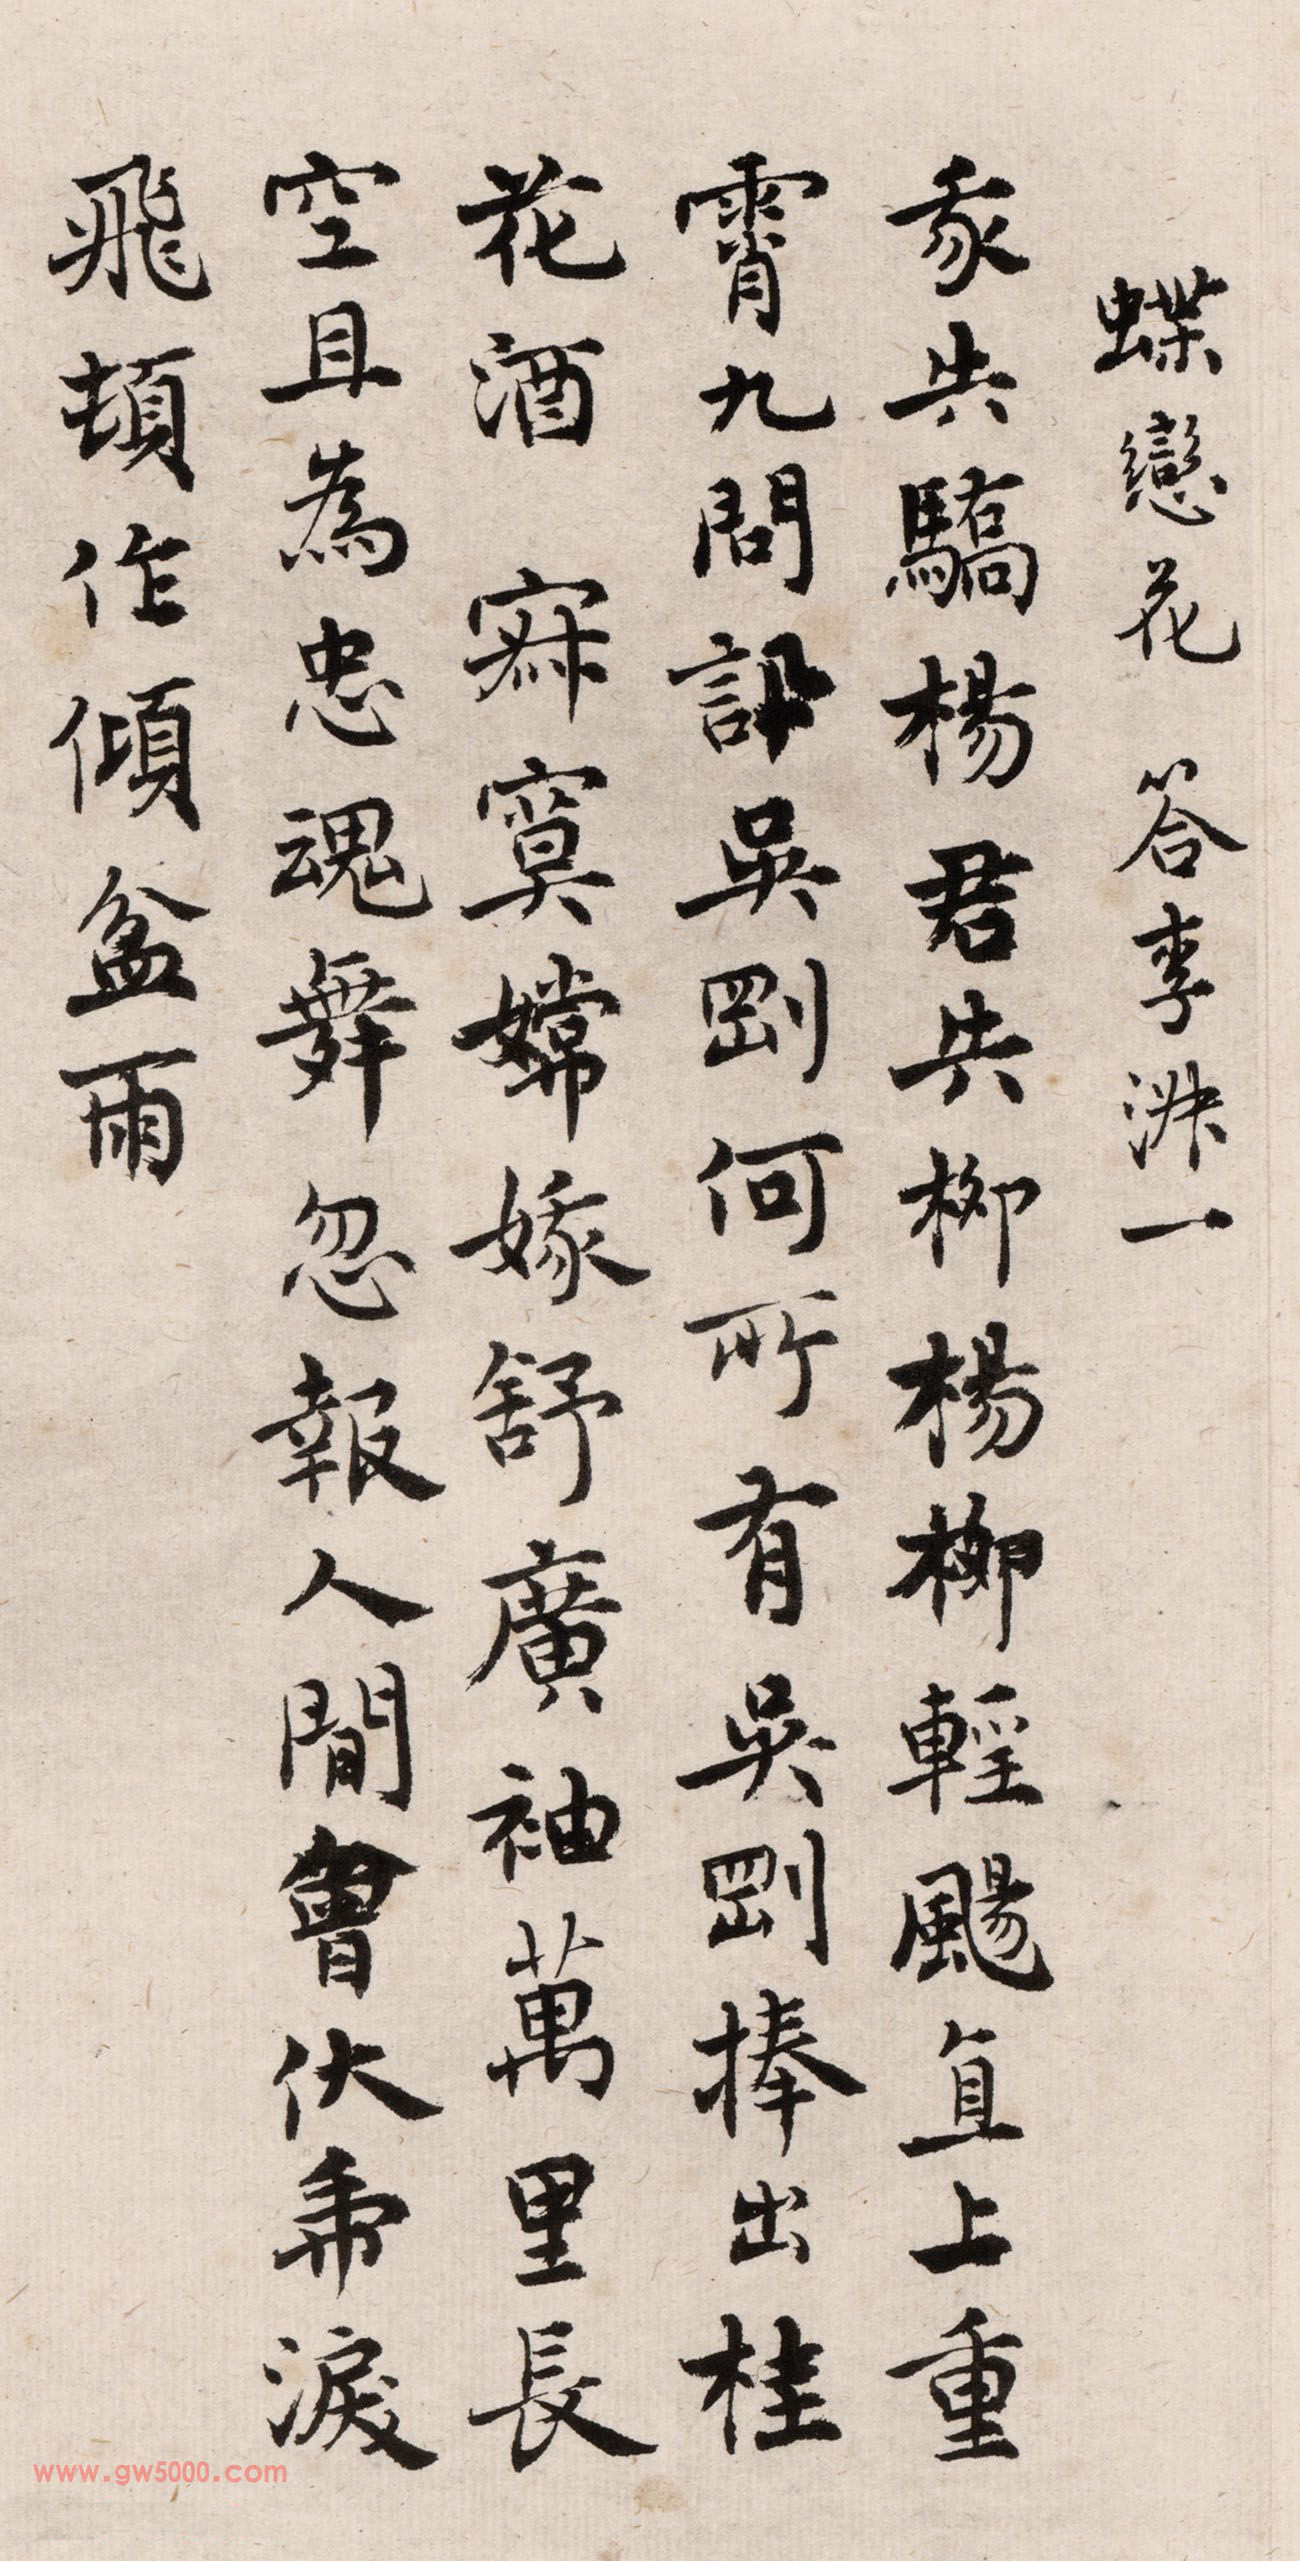 蝶戀花 答李淑一
我失驕楊君失柳楊柳輕颺直上重
霄九問訊吳剛何所有吳剛捧出桂
花酒 寂寞嫦娥舒廣袖萬里長
空且為忠魂舞忽報人間曾伏虎淚
飛頓作傾盆雨
www.gw5000.com